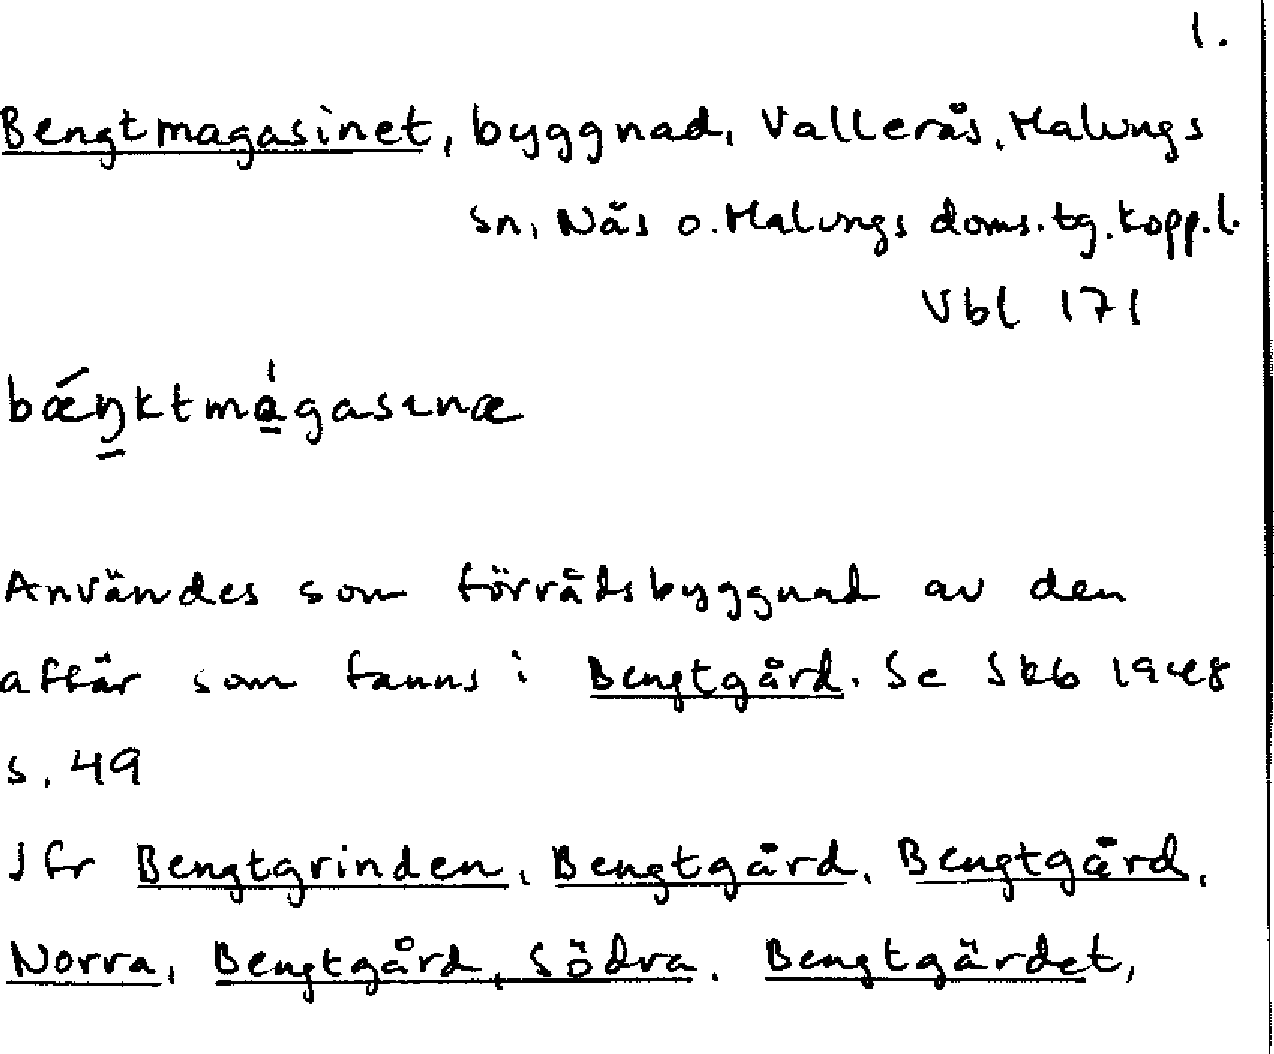 1.
Bengtmagasinet, byggnad, Vallerås, Malungs
sn, Näs o. Malungs doms. tg. Kopp. l.
Vbl 171
bǽŋktmàgasınæ
Användes som förrådsbyggnad av den
affär som fanns i Bengtgård. Se Skb 1948
s. 49
Jfr Bengtgrinden, Bengtgård, Bengtgård,
Norra, Bengtgård, Södra. Bengtgärdet,